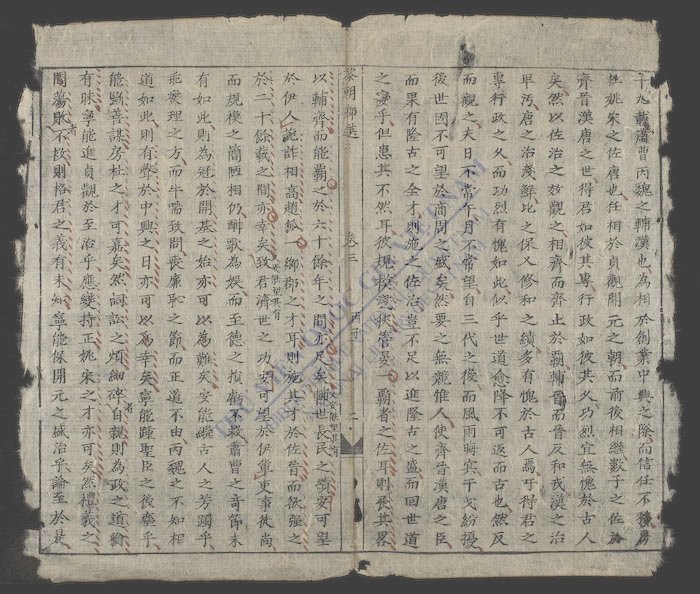 十九載蕭曹丙魏之輔漢也為相於創業中興之際而信任不移房
杜姚宋之佐唐也任相於貞觀開元之朝而前後相繼數子之佐於
齊晉漢唐之世得君如彼其專行政如彼其久功烈宜無愧於古人
矣然以佐治之效觀之相齊而齊止於霸輔晉而晉反和戎漢之治
卑汚唐之治淺鮮比之保乂修和之績多有愧於古人焉于得君之
專行政之久而功烈有愧如此似乎世道愈降不可返而古也然反
而觀之夫日不常午月不常望自三代之後而風雨晦冥干戈紛擾
後世固不可望於商周之盛矣然要之無競惟人使齊晉漢唐之臣
而果有隆古之全才則施之佐治豈不足以進隆古之盛而回世道
之變乎但患其不然耳彼規模淺狹管晏一霸者之佐耳則展其畧
黎朝鄉選 卷三 丙子 二
以輔齊而能霸之於六十餘年之間亦足矣輔世長民之績安可望
於伊人詭詐相高趙狐一鄉郡之才耳則施其才於佐晉而欲強之
於二十餘載之間亦幸矣致君濟世之功安可望於伊輩更事徒尚
而規模之簡陋相仍酣歌為娛而至德之損虧不救蕭曹之奇節未
有如此則為冠於開基之始亦可以為難矣安能繼古人之芳躅乎
乖燮理之方而牛喘致問喪廉恥之節而正道不由丙魏之不知相
道如此則有聲於中興之日亦可以為幸矣寧能踵聖臣之後塵乎
能斷善謀房杜之才可嘉矣然詞訟之煩細碎自親則為政之道猶
有昧寧能進貞觀於至治乎應變持正姚宋之才亦可矣然禮義之
閑蕩敗不扱則格君之義有未知寧能保開元之盛治乎論至於是
THƯ VIỆN QUỐC GIA VIỆT NAM
NATIONAL LIBRARY OF VIETNAM